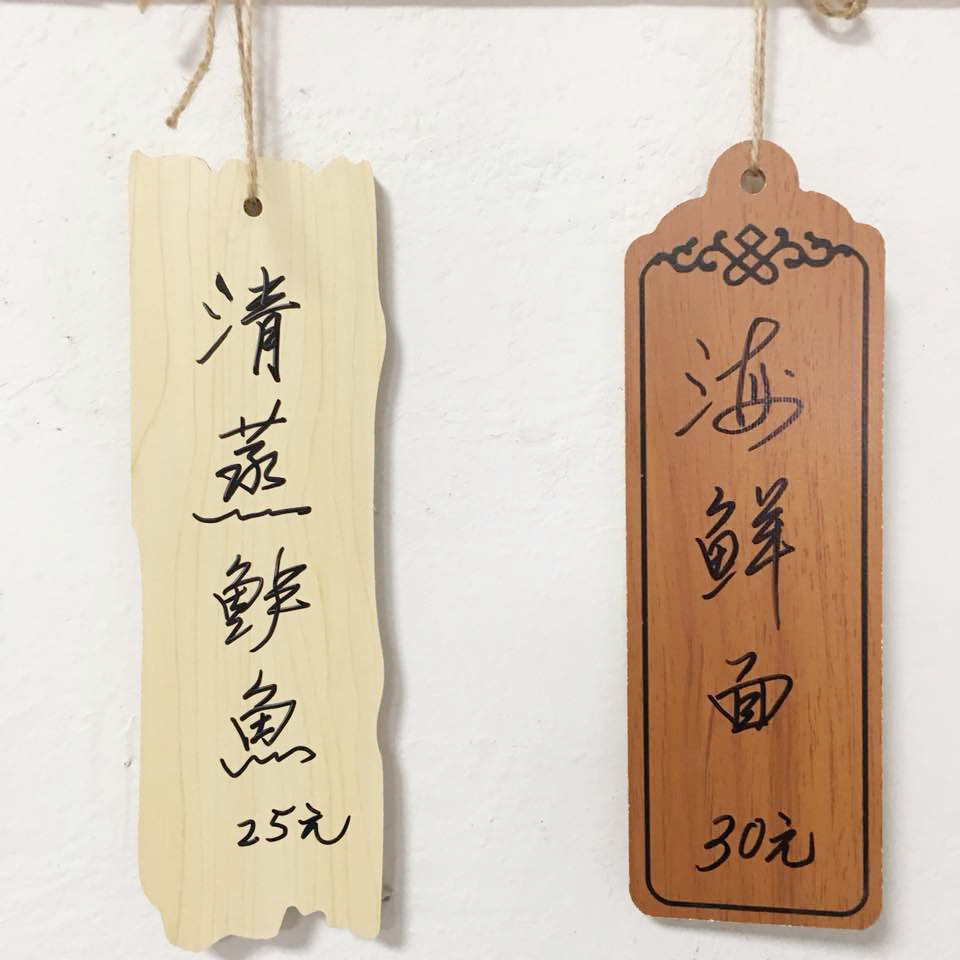 清蒸鲈魚
25元
海鲜面
30元